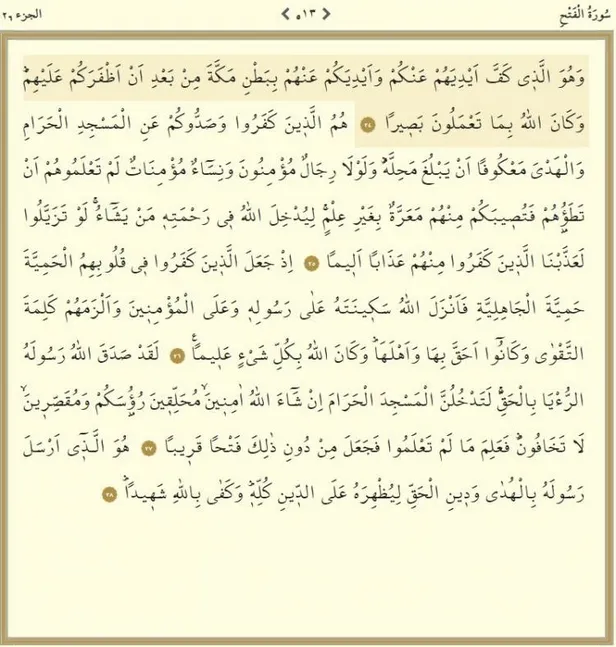 سُورَةُ الْفَتْحِ ❮ ٥١٣ ❯ الجزء ٢٦
وَهُوَ الَّذ۪ي كَفَّ اَيْدِيَهُمْ عَنْكُمْ وَاَيْدِيَكُمْ عَنْهُمْ بِبَطْنِ مَكَّةَ مِنْ بَعْدِ اَنْ اَظْفَرَكُمْ عَلَيْهِمْۜ
وَكَانَ اللّٰهُ بِمَا تَعْمَلُونَ بَص۪يرًا ٢٤ هُمُ الَّذ۪ينَ كَفَرُوا وَصَدُّوكُمْ عَنِ الْمَسْجِدِ الْحَرَامِ
وَالْهَدْيَ مَعْكُوفًا اَنْ يَبْلُغَ مَحِلَّهُۜ وَلَوْلَا رِجَالٌ مُؤْمِنُونَ وَنِسَٓاءٌ مُؤْمِنَاتٌ لَمْ تَعْلَمُوهُمْ اَنْ
تَطَؤُ۫هُمْ فَتُص۪يبَكُمْ مِنْهُمْ مَعَرَّةٌ بِغَيْرِ عِلْمٍۚ لِيُدْخِلَ اللّٰهُ ف۪ي رَحْمَتِه۪ مَنْ يَشَٓاءُۚ لَوْ تَزَيَّلُوا
لَعَذَّبْنَا الَّذ۪ينَ كَفَرُوا مِنْهُمْ عَذَابًا اَل۪يمًا ٢٥ اِذْ جَعَلَ الَّذ۪ينَ كَفَرُوا ف۪ي قُلُوبِهِمُ الْحَمِيَّةَ
حَمِيَّةَ الْجَاهِلِيَّةِ فَاَنْزَلَ اللّٰهُ سَك۪ينَتَهُ عَلٰى رَسُولِه۪ وَعَلَى الْمُؤْمِن۪ينَ وَاَلْزَمَهُمْ كَلِمَةَ
التَّقْوٰى وَكَانُٓوا اَحَقَّ بِهَا وَاَهْلَهَاۜ وَكَانَ اللّٰهُ بِكُلِّ شَيْءٍ عَل۪يمًا۟ ٢٦ لَقَدْ صَدَقَ اللّٰهُ رَسُولَهُ
الرُّءْيَا بِالْحَقِّۚ لَتَدْخُلُنَّ الْمَسْجِدَ الْحَرَامَ اِنْ شَٓاءَ اللّٰهُ اٰمِن۪ينَۙ مُحَلِّق۪ينَ رُؤُ۫سَكُمْ وَمُقَصِّر۪ينَۙ
لَا تَخَافُونَۜ فَعَلِمَ مَا لَمْ تَعْلَمُوا فَجَعَلَ مِنْ دُونِ ذٰلِكَ فَتْحًا قَر۪يبًا ٢٧ هُوَ الَّذ۪ٓي اَرْسَلَ
رَسُولَهُ بِالْهُدٰى وَد۪ينِ الْحَقِّ لِيُظْهِرَهُ عَلَى الدّ۪ينِ كُلِّه۪ۜ وَكَفٰى بِاللّٰهِ شَه۪يدًاۜ ٢٨